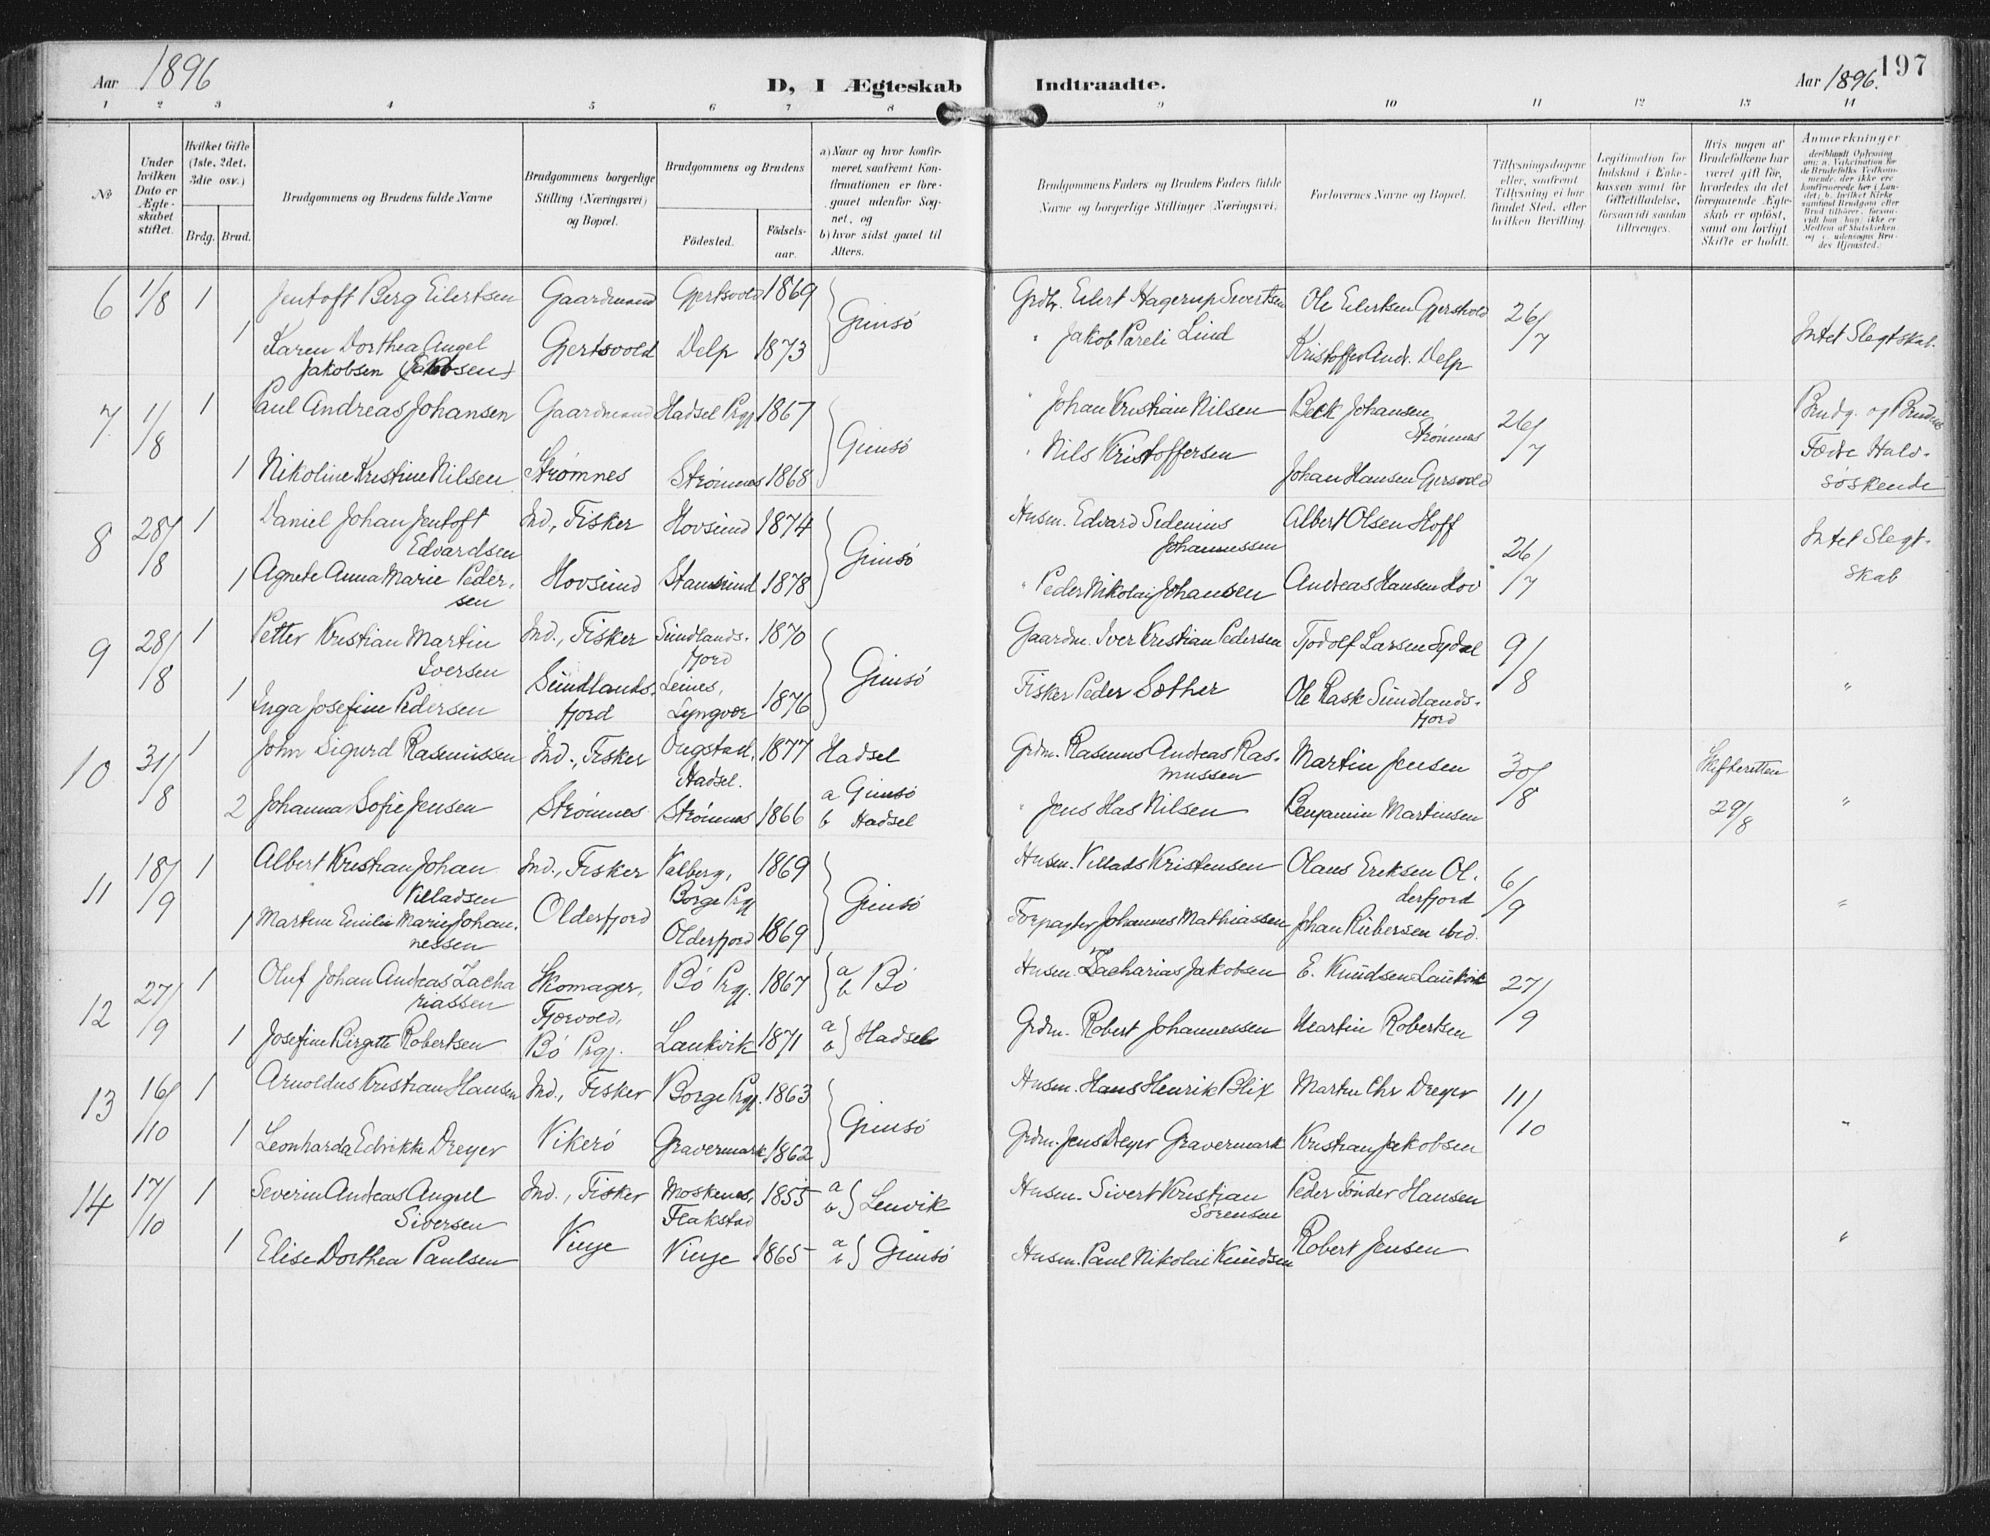 Aar 1896
D, I Ægteskab Indtraadte.
Aar 1896. 197
1 2 3 4 5 6 7 8 9 10 11 12 13 14
No
Under hvilken Dato er Ægteskabet stiftet.
Hvilket Gifte (1ste, 2det, 3die osv.)
Brdg. Brud.
Brudgommens og Brudens fulde Navne
Brudgommens borgerlige Stilling (Næringsvei) og Bopæl.
Brudgommens og Brudens
Födested. Födselsaar.
a) Naar og hvor konfirmeret, saafremt Konfirmationen er foregaaet udenfor Sognet, og
b) hvor sidst gaaet til Alters.
Brudgommens Faders og Brudens Faders fulde Navne og borgerlige Stillinger (Næringsvei)
Forlovernes Navne og Bopæl.
Tillysningsdagene eller, saafremt Tillysning ei har fundet Sted, efter hvilken Bevilling.
Legitimation for Indskud i Enkekassen samt for Giftetilladelse, forsaavidt saadan tiltrænges.
Hvis nogen af Brudefolkene har været gift för, hvorledes da det foregaaende Ægteskab er oplöst, samt om lovligt Skifte er holdt.
Anmærkninger
6 1/8 1 Jentoft Berg Eilertsen Gaardmand Gjertsvold 1869 Gimsö Grdbr. Eilert Hagerup Sivertsen Ole Eilertsen Gjersvold 26/7
1 Karen Dorthea Angel Jakobsen (Jakobsen) Gjertsvold Delp 1873 " Jakob Pareli Lind Kristoffer Andr. Delp Intet Slegtskab.
7 1/8 1 Paul Andreas Johansen Gaardmand Hadsel Prgj 1867 Gimsö " Johan Kristian Nilsen Beck Johansen Strømnes 26/7 Brudg. og Brudens
1 Nikoline Kristine Nilsen Strømnes Strømnes 1868 " Nils Kristoffersen Johan Hansen Gjersvold Fædre Halvsöskende
8 28/8 1 Daniel Johan Jentoft Edvardsen Ind., Fisker Hovsund 1874 Gimsö Husm. Edvard Sidenius Johannessen Albert Olsen Hoff 26/7 Intet Slegtskab
1 Agnete Anna Marie Pedersen Hovsund Stamsund 1878 " Peder Nikolai Johansen Andreas Hansen Hov
9 28/8 1 Petter Kristian Martin Iversen Ind., Fisker Sundlandsfjord 1870 Gimsö Gaardm. Iver Kristian Pedersen Tjodolf Larsen Sydal 9/8
1 Inga Josefine Pedersen Sundlandsfjord Leines, Lyngvær 1876 Fisker Peder Sæther Ole Rask Sundlandsfjord "
10 31/8 1 John Sigurd Rasmussen Ind., Fisker Ongstad, Hadsel. 1877 Hadsel Grdm. Rasmus Andreas Rasmussen Martin Jensen 30/8 Skifteretten 29/8
2 Johanna Sofie Jensen Strømnes Strømnes 1866 a Gimsö b Hadsel " Jens Has Nilsen Benjamin Martinsen "
11 18/9 1 Albert Kristian Johan Villadsen Ind., Fisker Valberg, Borge Prgj 1869 Gimsö Husm. Villads Kristensen Olaus Eriksen Olderfjord 6/9
1 Martine Emilie Marie Johannessen Olderfjord Olderfjord 1869 Forpagter Johannes Mathiassen Johan Ribersen ibid. "
12 27/9 1 Oluf Johan Andreas Zachariassen Skomager, Bö Prgj. 1867 a b Bö Husm. Zacharias Jakobsen E. Knudsen Laukvik 27/9
1 Josefine Birgitte Robertsen Fjærvold, Bö Prgj. Laukvik 1871 a b Hadsel Grdm. Robert Johannessen Martin Robertsen
13 16/10 1 Arnoldus Kristian Hansen Ind., Fisker Borge Prgj. 1863 Gimsö Husm. Hans Henrik Blix Martin Chr Dreyer 11/10
1 Leonharda Edvikke Dreyer Vikerö Gravermark 1862 Grdm. Jens Dreyer Gravermark Kristian Jakobsen "
14 17/10 1 Severin Andreas Angel Siversen Ind., Fisker Moskenes, Flakstad 1855 a b Lenvik Husm. Sivert Kristian Sörensen Peder Tönder Hansen
1 Elise Dorthea Paulsen Vinje Vinje 1865 a b Gimsö Husm. Paul Nikolai Knudsen Robert Jensen "